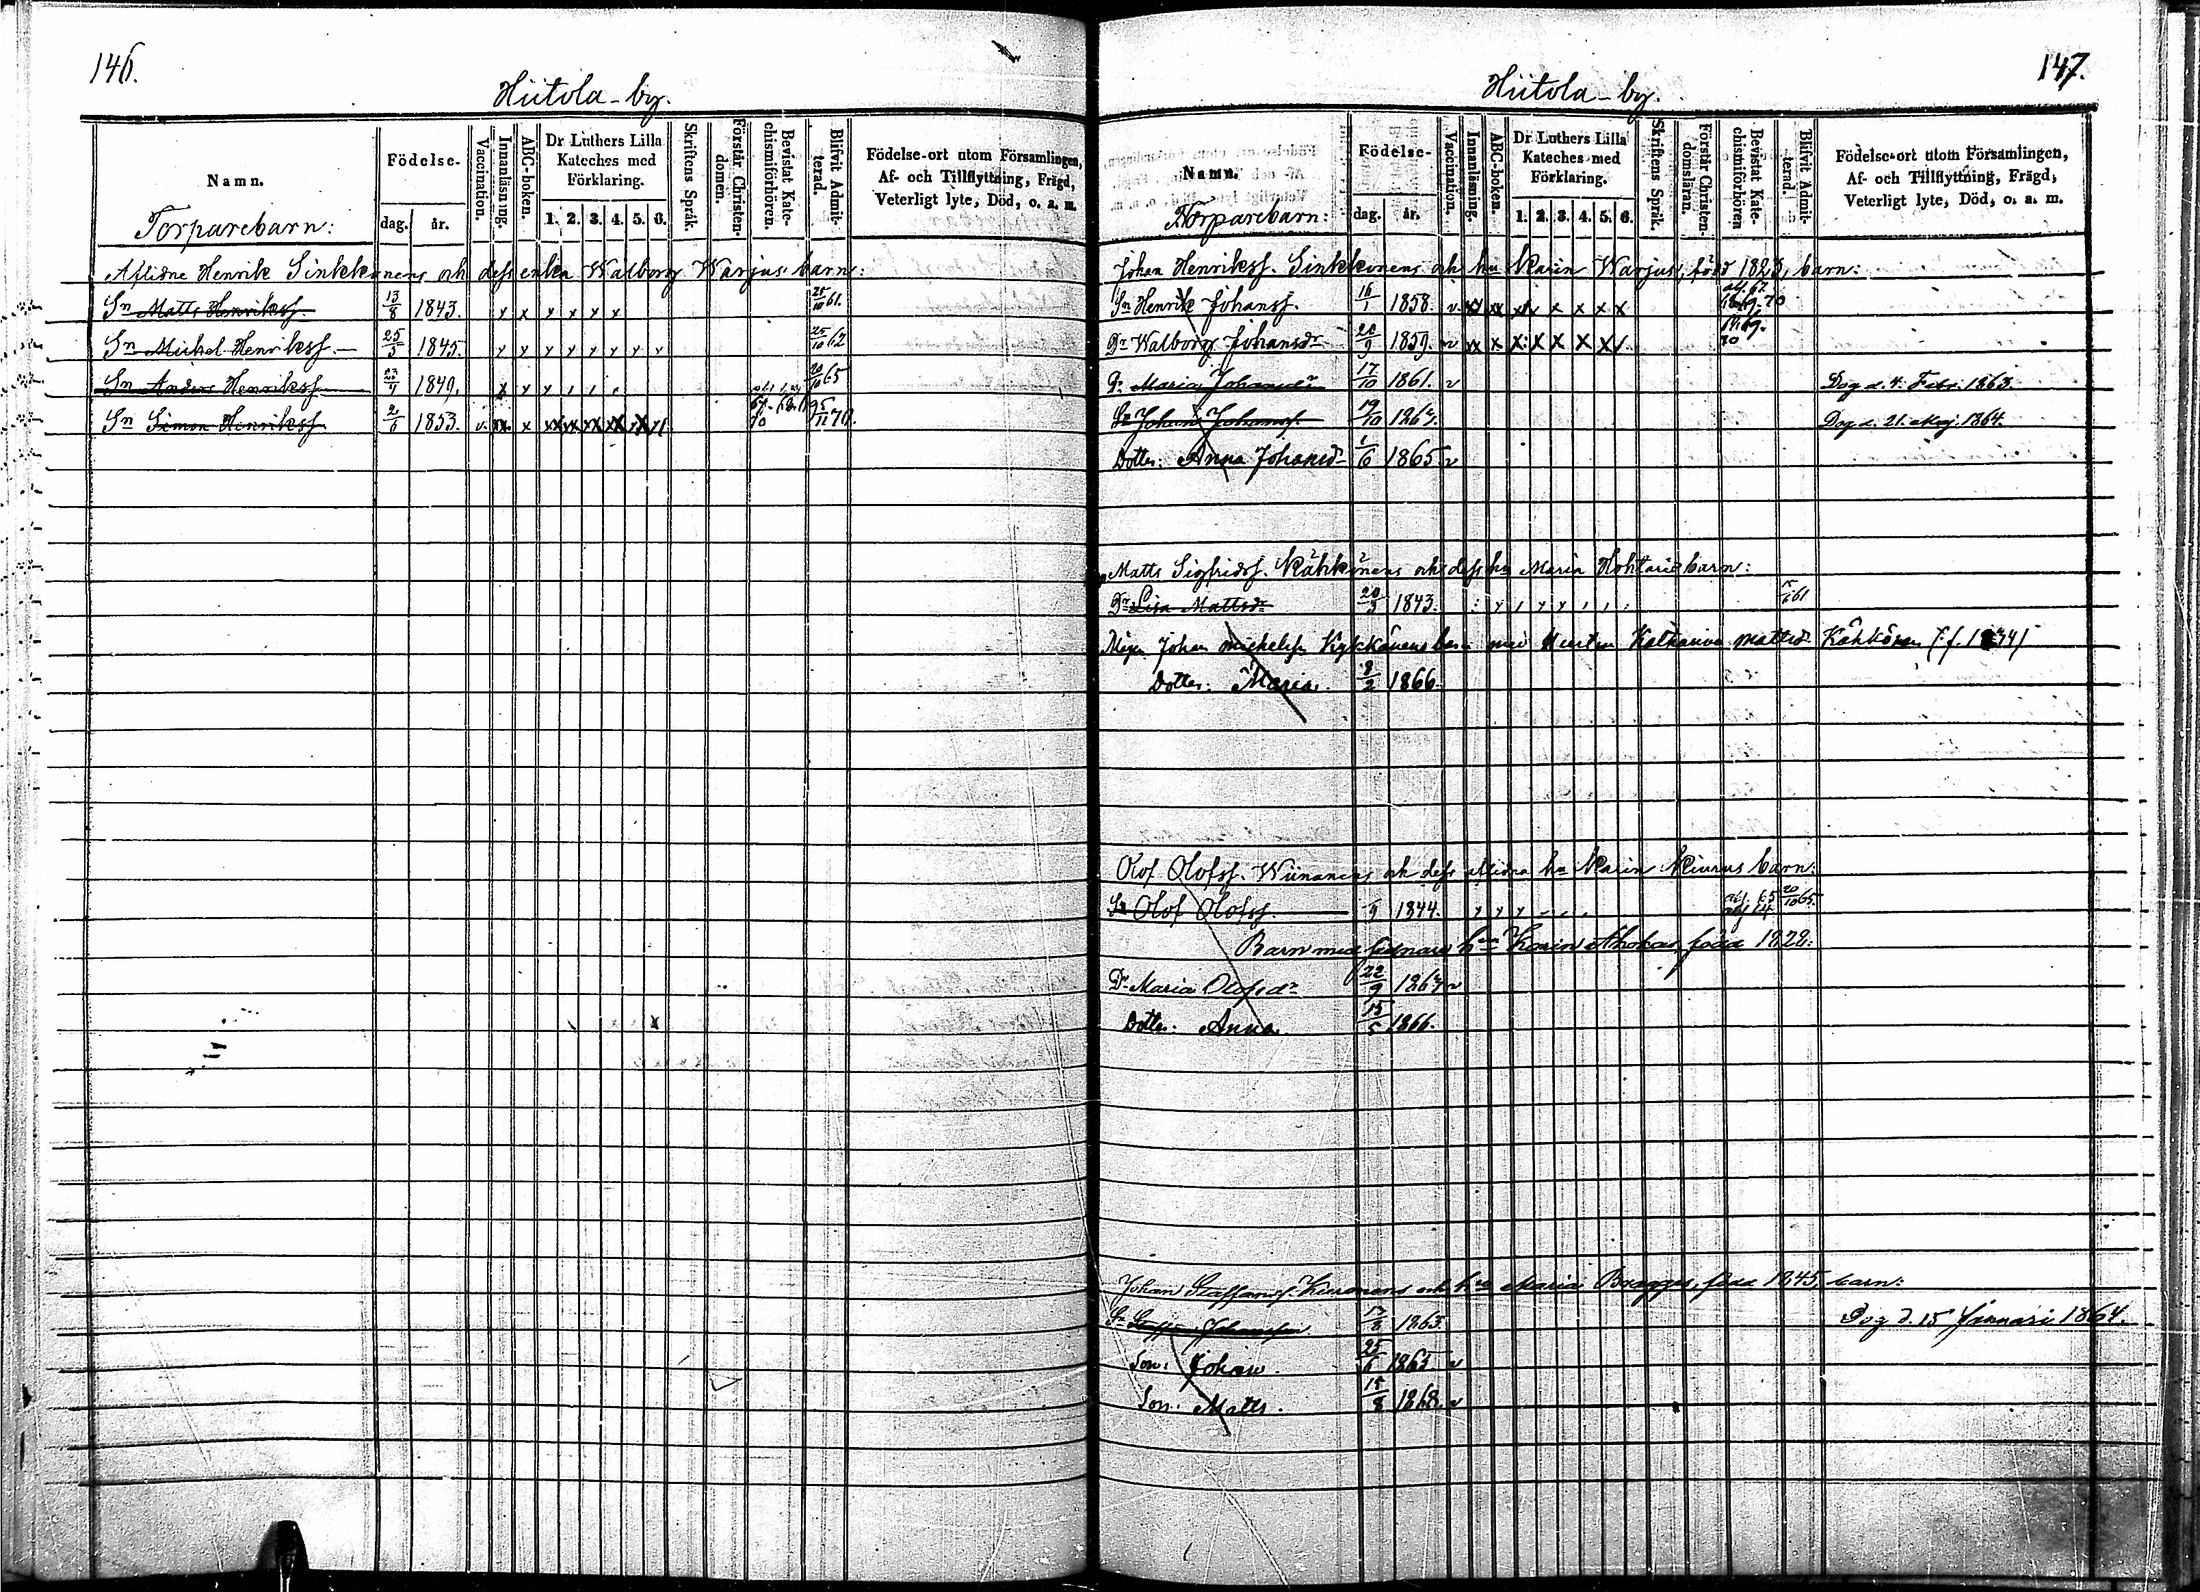 146.
Hiitola-by.
Namn.
Födelse-
dag. år.
Vaccination.
Innanläsning.
ABC-boken.
Dr Luthers Lilla Kateches med Förklaring.
1. 2. 3. 4. 5. 6.
Skriftens Språk.
Förstår Christen-domen.
Bevistat Kate-chismiförhören.
Blifvit Admit-terad.
Födelse-ort utom Församlingen,
Af- och Tillflyttning, Frägd,
Veterligt lyte, Död, o. a. m.
Torparebarn:
Aflidne Henrik Sinkkonens och dess enka Walborg Warjus' barn:
Sn Matts Henrikss. 13/8 1843. 25/10 61.
Sn Michel Henrikss. 25/3 1845. 25/10 62
Sn Anders Henrikss. 1849. 20/10 65
Sn Simon Henrikss. 2/6 1853. v.
147.
Hiitola-by.
Namn.
Födelse-
dag. år.
Vaccination.
Innanläsning.
ABC-boken.
Dr Luthers Lilla Kateches med Förklaring.
1. 2. 3. 4. 5. 6.
Skriftens Språk.
Förstår Christen-domsläran.
Bevistat Kate-chismiförhören
Blifvit Admit-terad.
Födelse-ort utom Församlingen,
Af- och Tillflyttning, Frägd,
Veterligt lyte, Död, o. a. m.
Torparebarn:
Johan Henrikss. Sinkkonens och hu Karin Warjus, född 1823, barn:
Sn Henrik Johanss. 16/1 1858. v.
Dr Walborg Johansdr 20/9 1859. v
Dr Maria Johansdr 17/10 1861. v Dog d. 4. Febr. 1863.
Sn Johan Johanss. 19/10 Dog d. 21. Maj. 1864.
Dotter: Anna Johansdr 1/6 1865 v
Matts Sigfridss. Kähkönens och dess hu Maria barn:
Dr Lisa Mattsdr 20/3 1843. 61
Johan Michelss. Kykkänens barn med Hustrun Katharina Mattsd. Kähkönen
Dotter: Maria. 8/2 1866.
Olof Olofss. Wiinanens och dess aflidna hu Karin Kiurus barn:
Sn Olof Olofss. 1844. 20/10 65.
Barn med sednare hun Karin Ahokas född 1828:
Dr Maria Olofsdr 22/9 v
Dotter. Anna. 15/5 1866.
Johan Staffanss. och hu Maria född 1845, barn:
Sn Staffan Johansson 1863. Dog d. 15 Januari 1864.
Son: Johan. 25/6 1865 v
Son: Matts. 15/8 1868. v